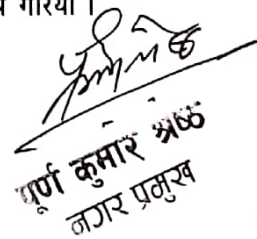 गरियो ।
पूर्ण कुमार श्रेष्ठ
नगर प्रमुख